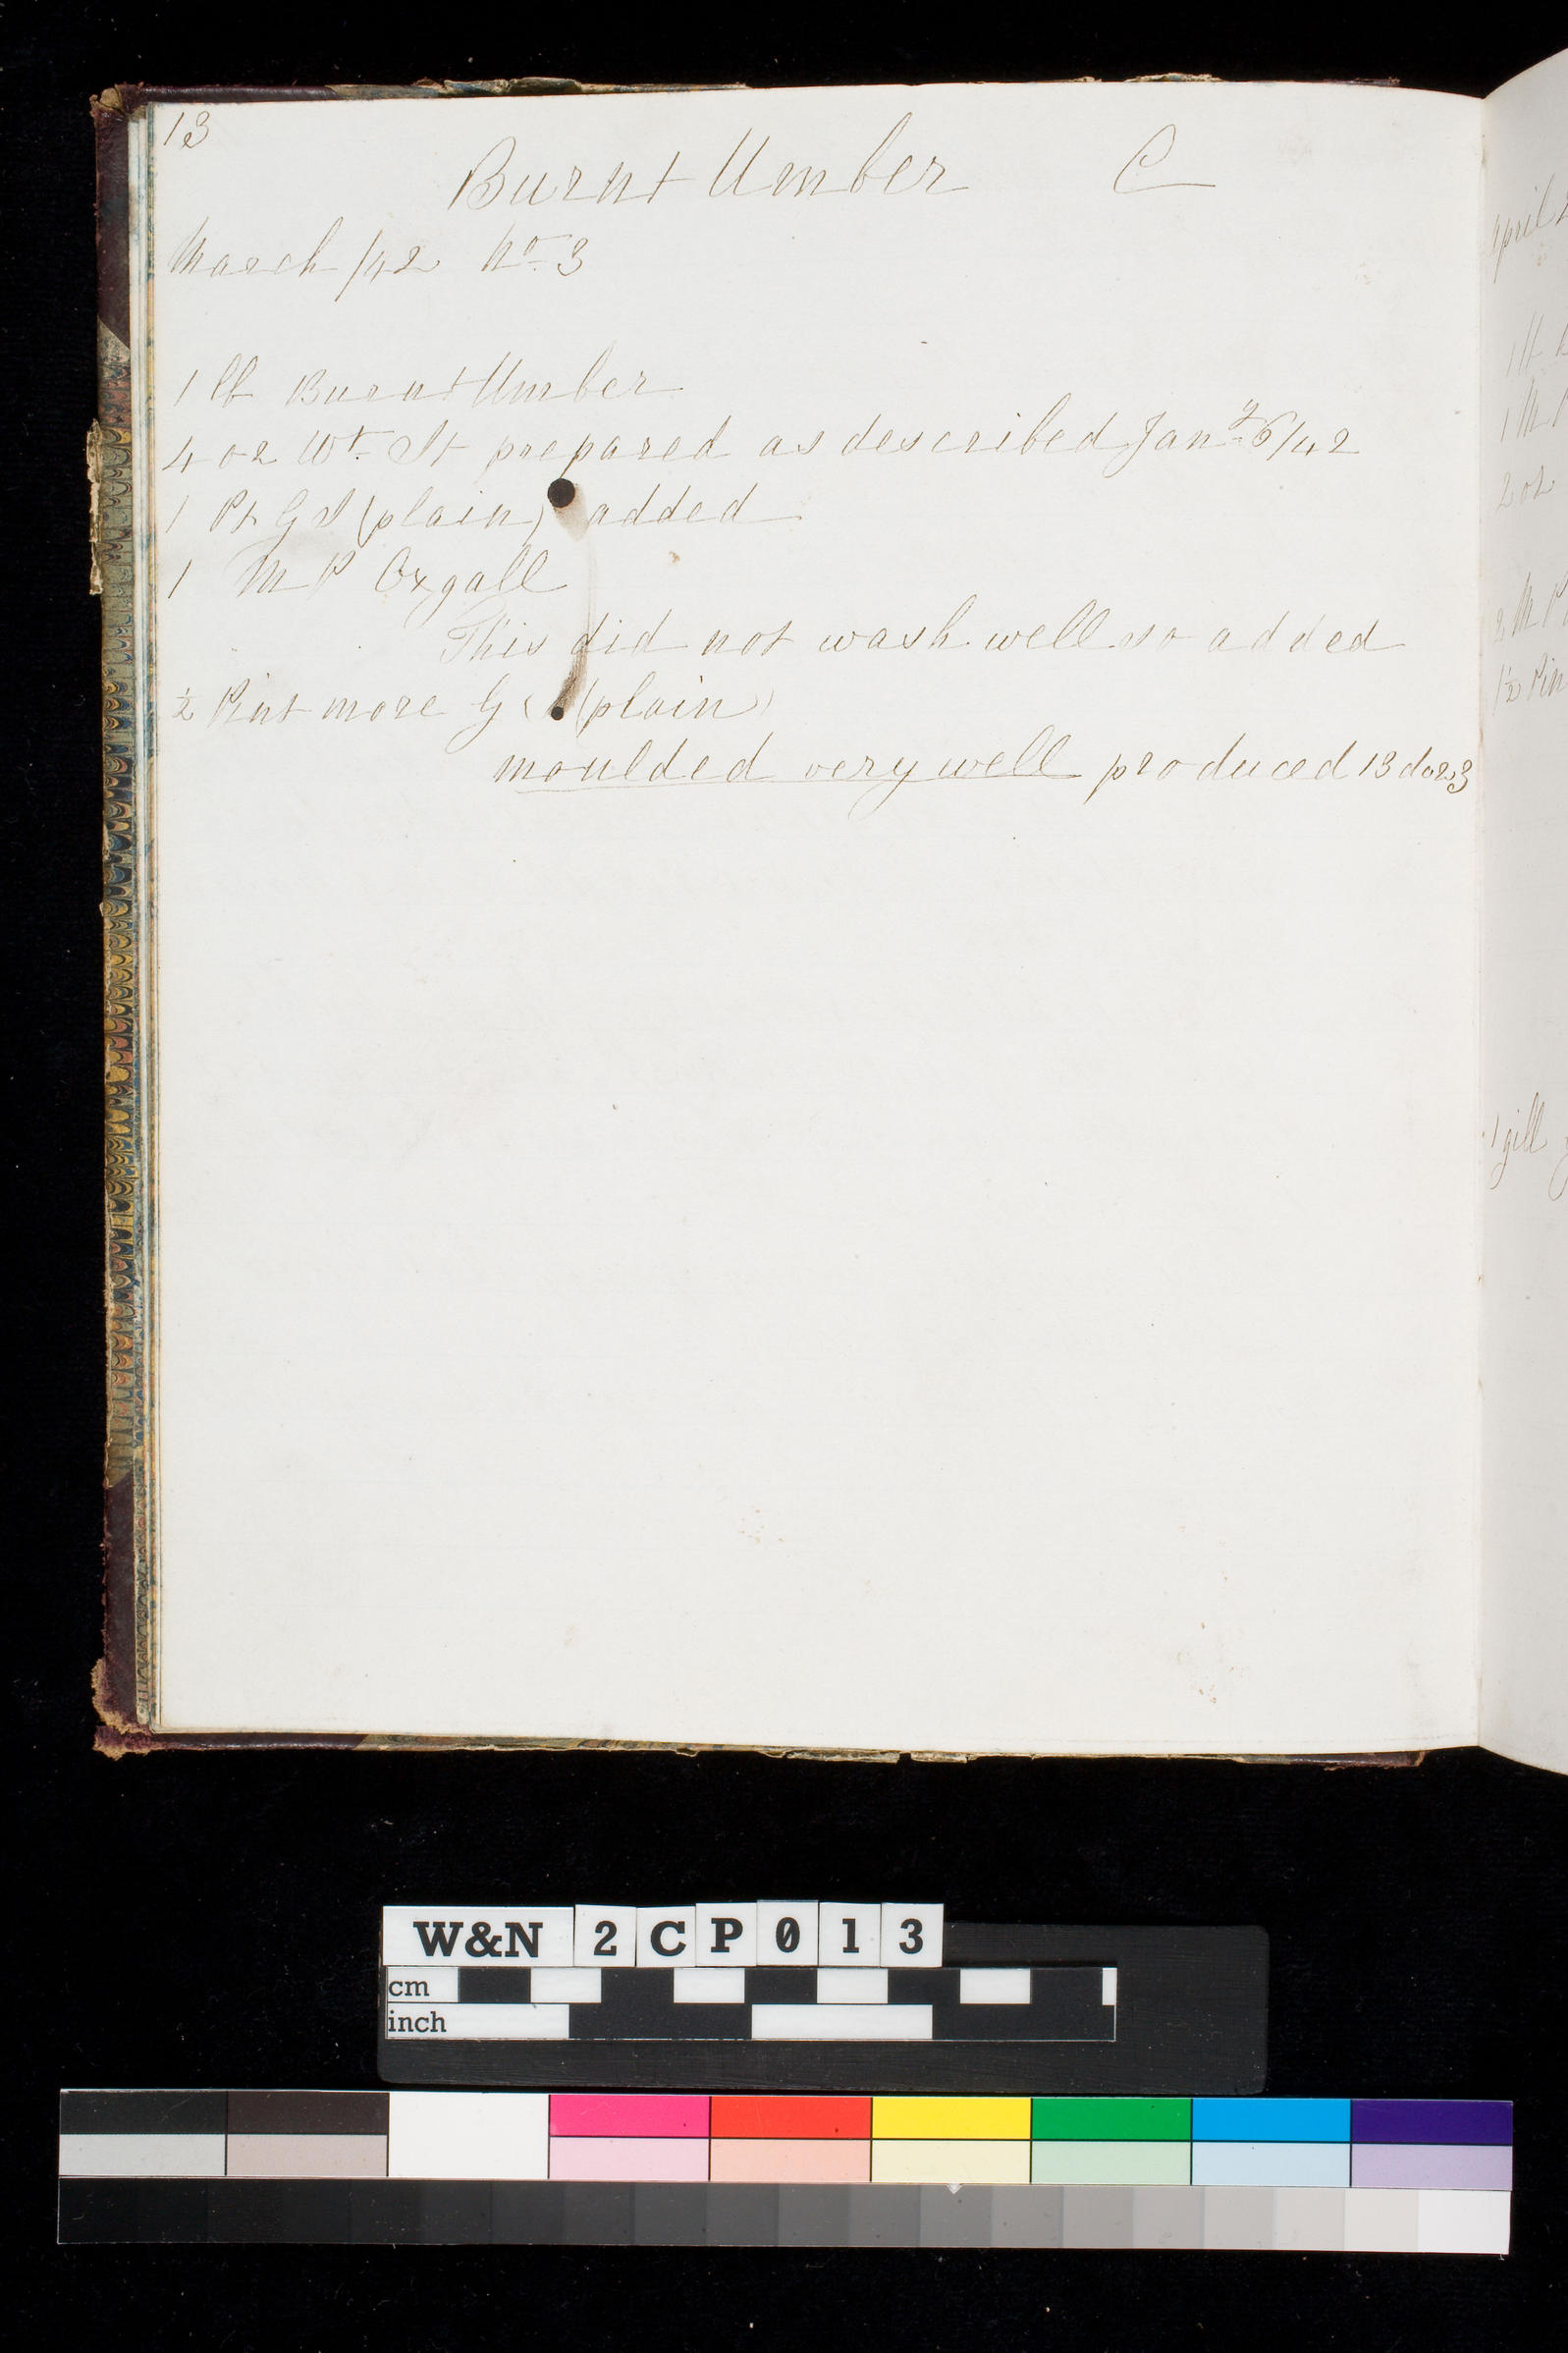 13
Burnt Umber C
March /42 No. 3
1 lb Burnt Umber
4 oz Wt. St prepared as described Jany. 6/42
1 Pt G S (plain) added
1 M P Oxgall
This did not wash well so added
½ Pint more G (plain)
moulded very well produced 13 doz 3
April
1 lb
1 M
2 oz
2 M P
1½ Pin
1 gill
W&N 2CP013
cm
inch